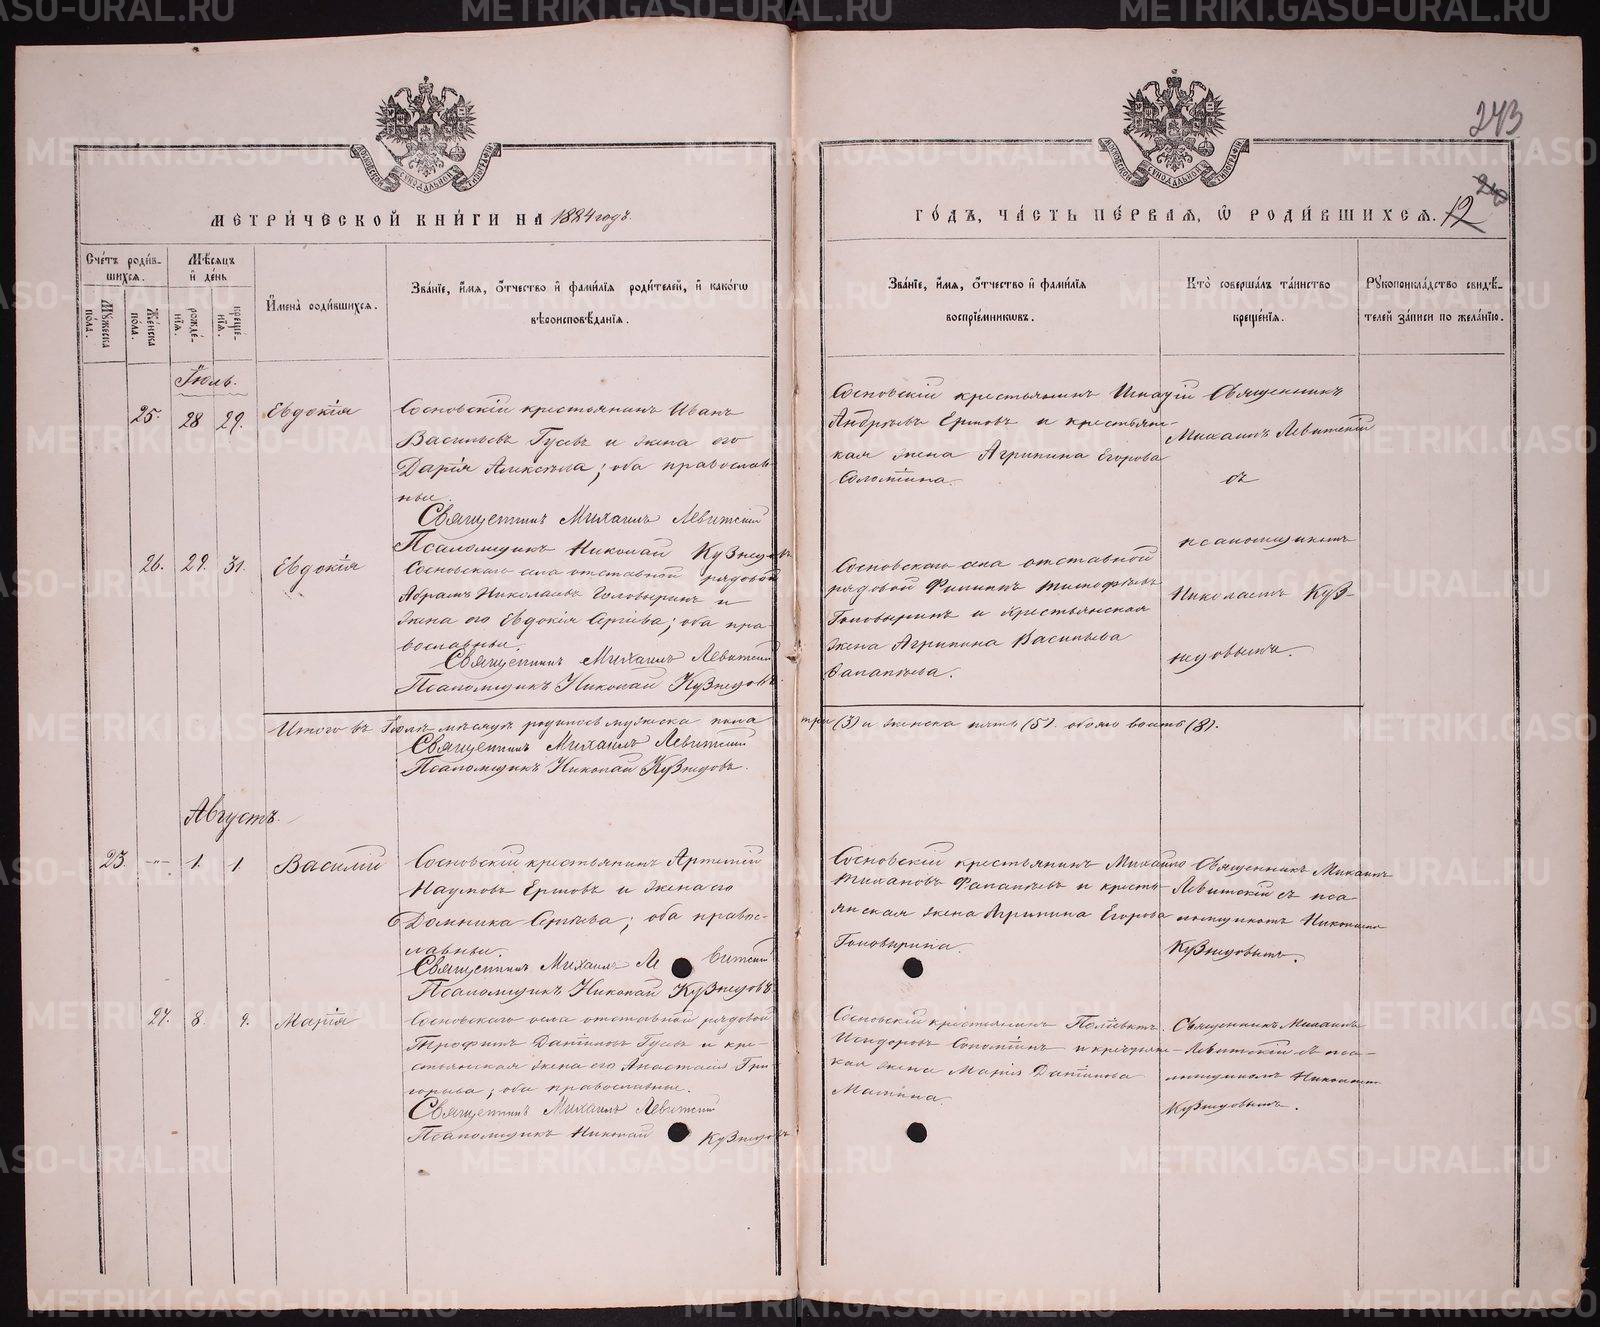 243
240
12
МЕТРИЧЕСКОЙ КНИГИ НА 1884 годъ.
ГОДЪ, ЧАСТЬ ПЕРВАЯ, Ѡ РОДИВШИХСЯ.
Счетъ родив-
шихся.
Мѣсяцъ
и день
Мужеска
пола.
Женска
пола.
рожде-
нія.
креще-
нія.
Имена родившихся.
Званіе, имя, отчество и фамилія родителей, и какогѡ
вѣроисповѣданія.
Званіе, имя, отчество и фамилія
воспріемникѡвъ.
Кто совершалъ таинство
крещенія.
Рукоприкладство свидѣ-
телей записи по желанію.
Іюль.
25. 28 29. Евдокія
Сосновскій крестьянинъ Иванъ
Васильевъ Гусевъ и жена его
Дарія Алексѣева; оба православ-
ные.
Священникъ Михаилъ Левитскій
Псаломщикъ Николай Кузнецовъ
Сосновскій крестьянинъ Игнатій
Андреевъ Ершовъ и крестьянс-
кая жена Агрипина Егорова
Соломѣина.
Священникъ
Михаилъ Левитскій
съ
псаломщикомъ
Николаемъ Куз-
нецовымъ.
26. 29. 31. Евдокія
Сосновскаго села отставной рядовой
Абрамъ Николаевъ Головыринъ и
жена его Евдокія Сергіева; оба пра-
вославные.
Священникъ Михаилъ Левитскій
Псаломщикъ Николай Кузнецовъ.
Сосновскаго села отставной
рядовой Филипъ Тимофѣевъ
Головыринъ и крестьянская
жена Агрипина Васильева
Фалалѣева.
Итого въ Іюлѣ мѣсяцѣ родилось мужеска пола три (3) и женска пять (5). обоего восемь (8).
Священникъ Михаилъ Левитскій
Псаломщикъ Николай Кузнецовъ.
Августъ.
23. -"- 1. 1. Василій
Сосновскій крестьянинъ Артемій
Наумовъ Ершовъ и жена его
Домника Сергѣева; оба правос-
лавные.
Священникъ Михаилъ Левитскій
Псаломщикъ Николай Кузнецовъ
Сосновскій крестьянинъ Михаило
Тихановъ Фалалѣевъ и кресть-
янская жена Агрипина Егорова
Головырина.
Священникъ Михаилъ
Левитскій съ пса-
ломщикомъ Николаемъ
Кузнецовымъ.
27. 8. 9. Марія
Сосновскаго села отставной рядовой
Трофимъ Даниловъ Гусевъ и кре-
стьянская жена его Анастасія Гри-
горьева; оба православные.
Священникъ Михаилъ Левитскій
Псаломщикъ Николай Кузнецовъ
Сосновскій крестьянинъ Поліевктъ
Исидоровъ Соломѣинъ и крестьянс-
кая жена Марія Данилова
Малѣина.
Священникъ Михаилъ
Левитскій съ пса-
ломщикомъ Николаемъ
Кузнецовымъ.
METRIKI.GASO-URAL.RU